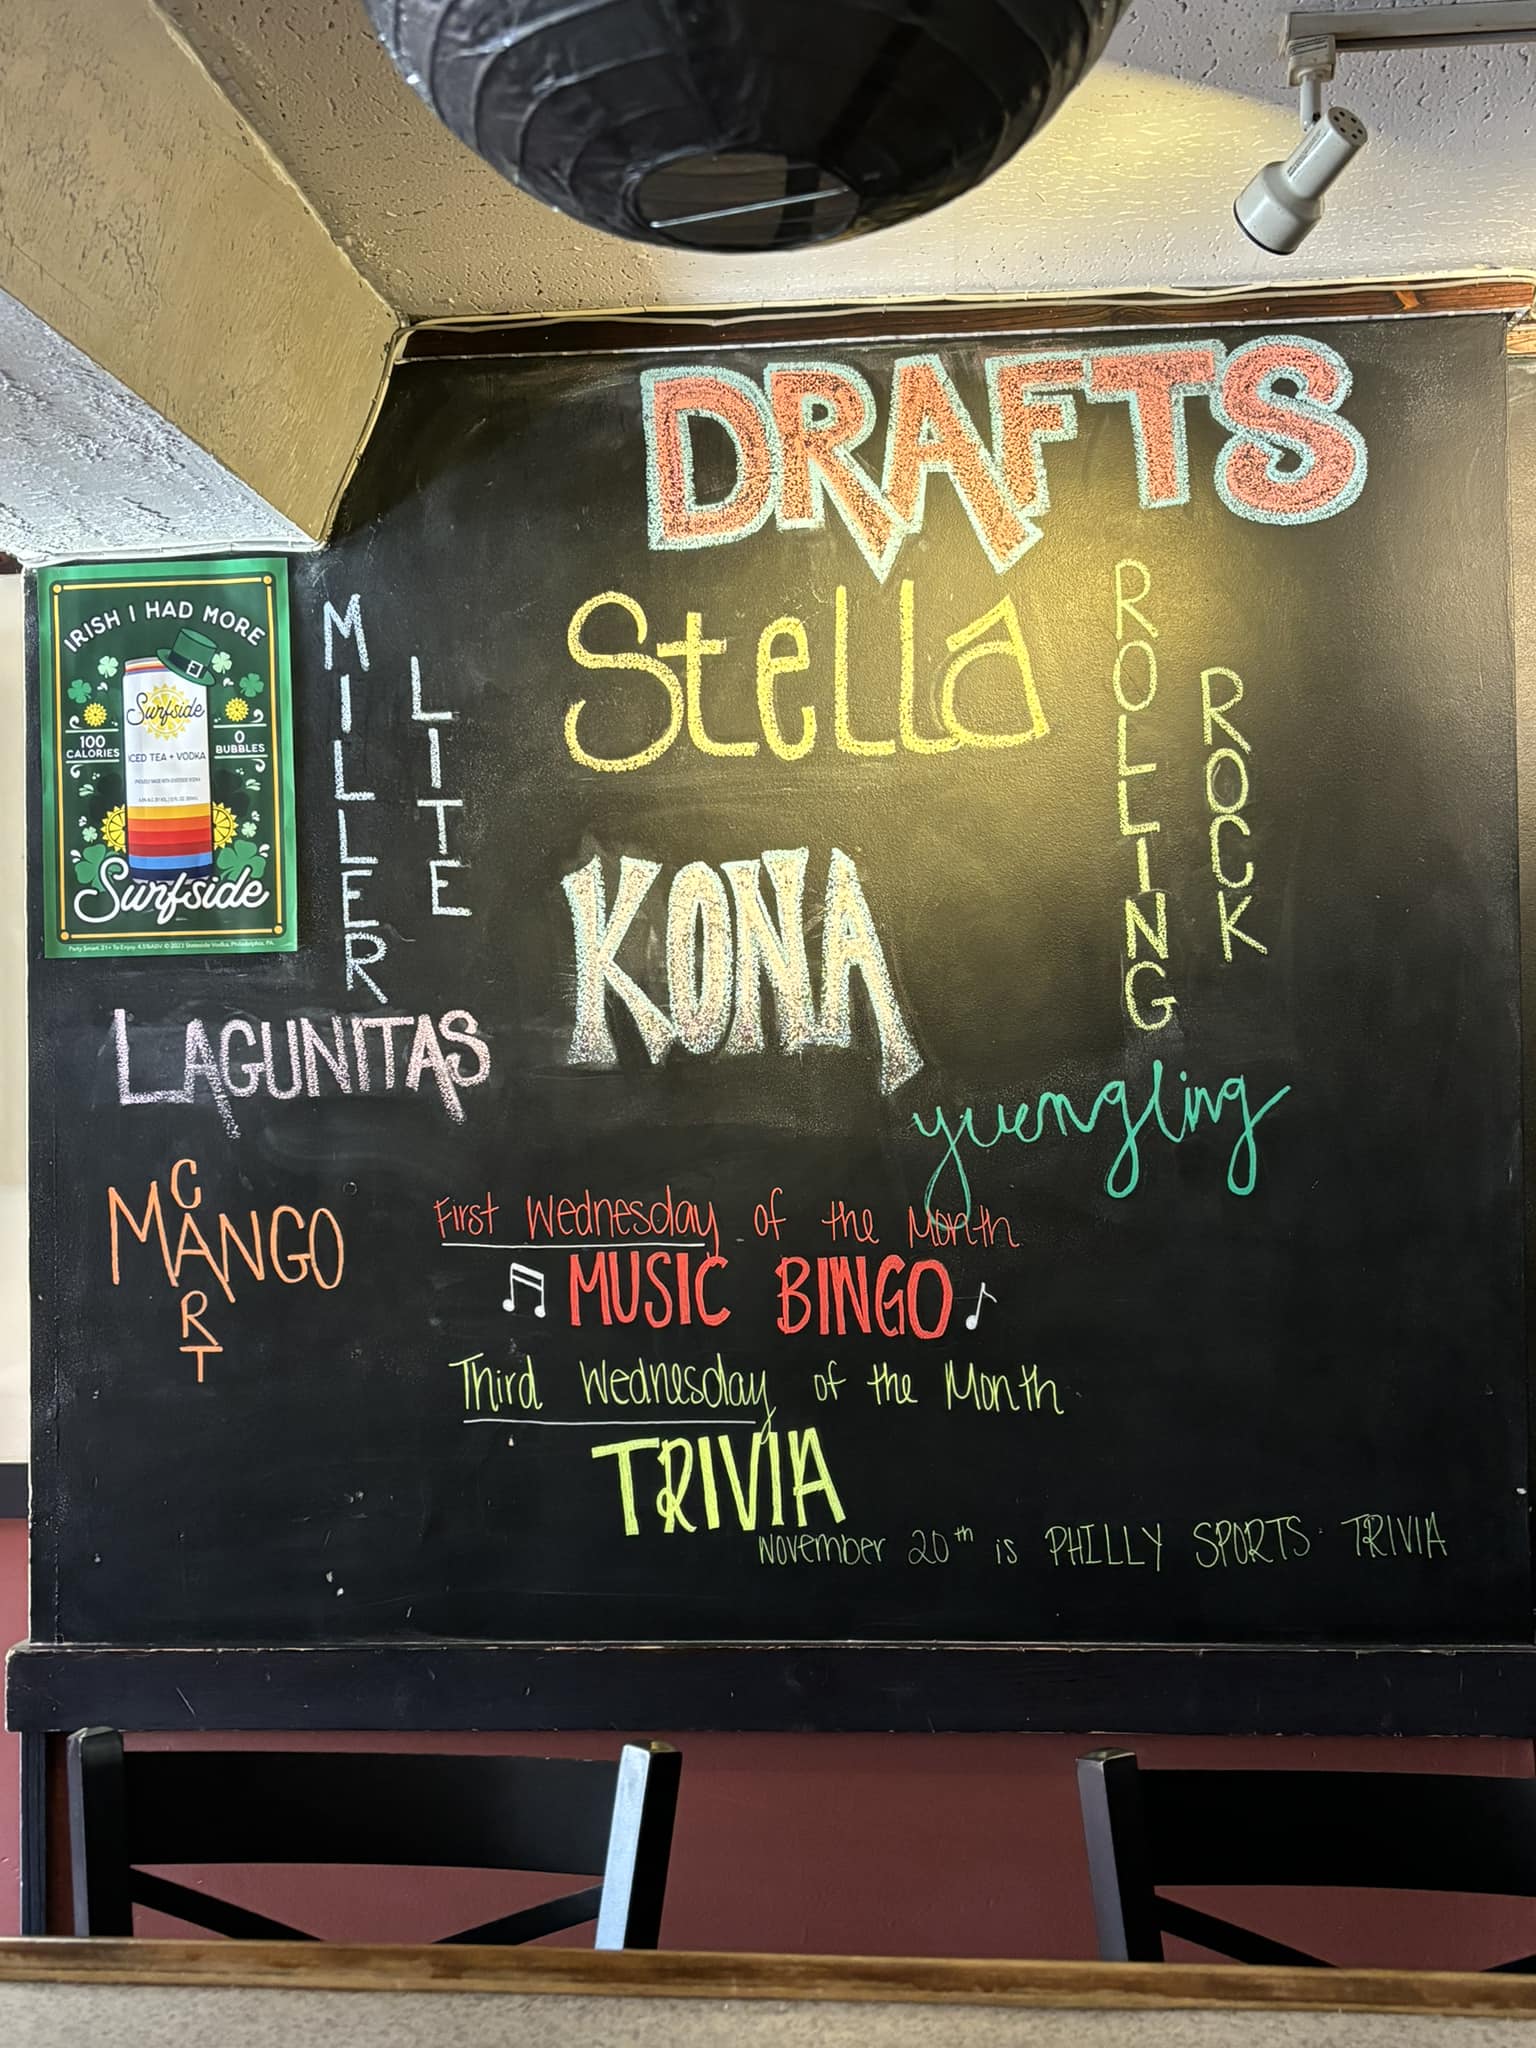 DRAFTS
IRISH I HAD MORE
Surfside
ICED TEA + VODKA
100
CALORIES
0
BUBBLES
Surfside
MILLER
LITE
Stella
ROLLING
ROCK
KONA
LAGUNITAS
yuengling
MANGO
CART
First Wednesday of the Month
MUSIC BINGO
Third Wednesday of the Month
TRIVIA
November 20th is PHILLY SPORTS TRIVIA